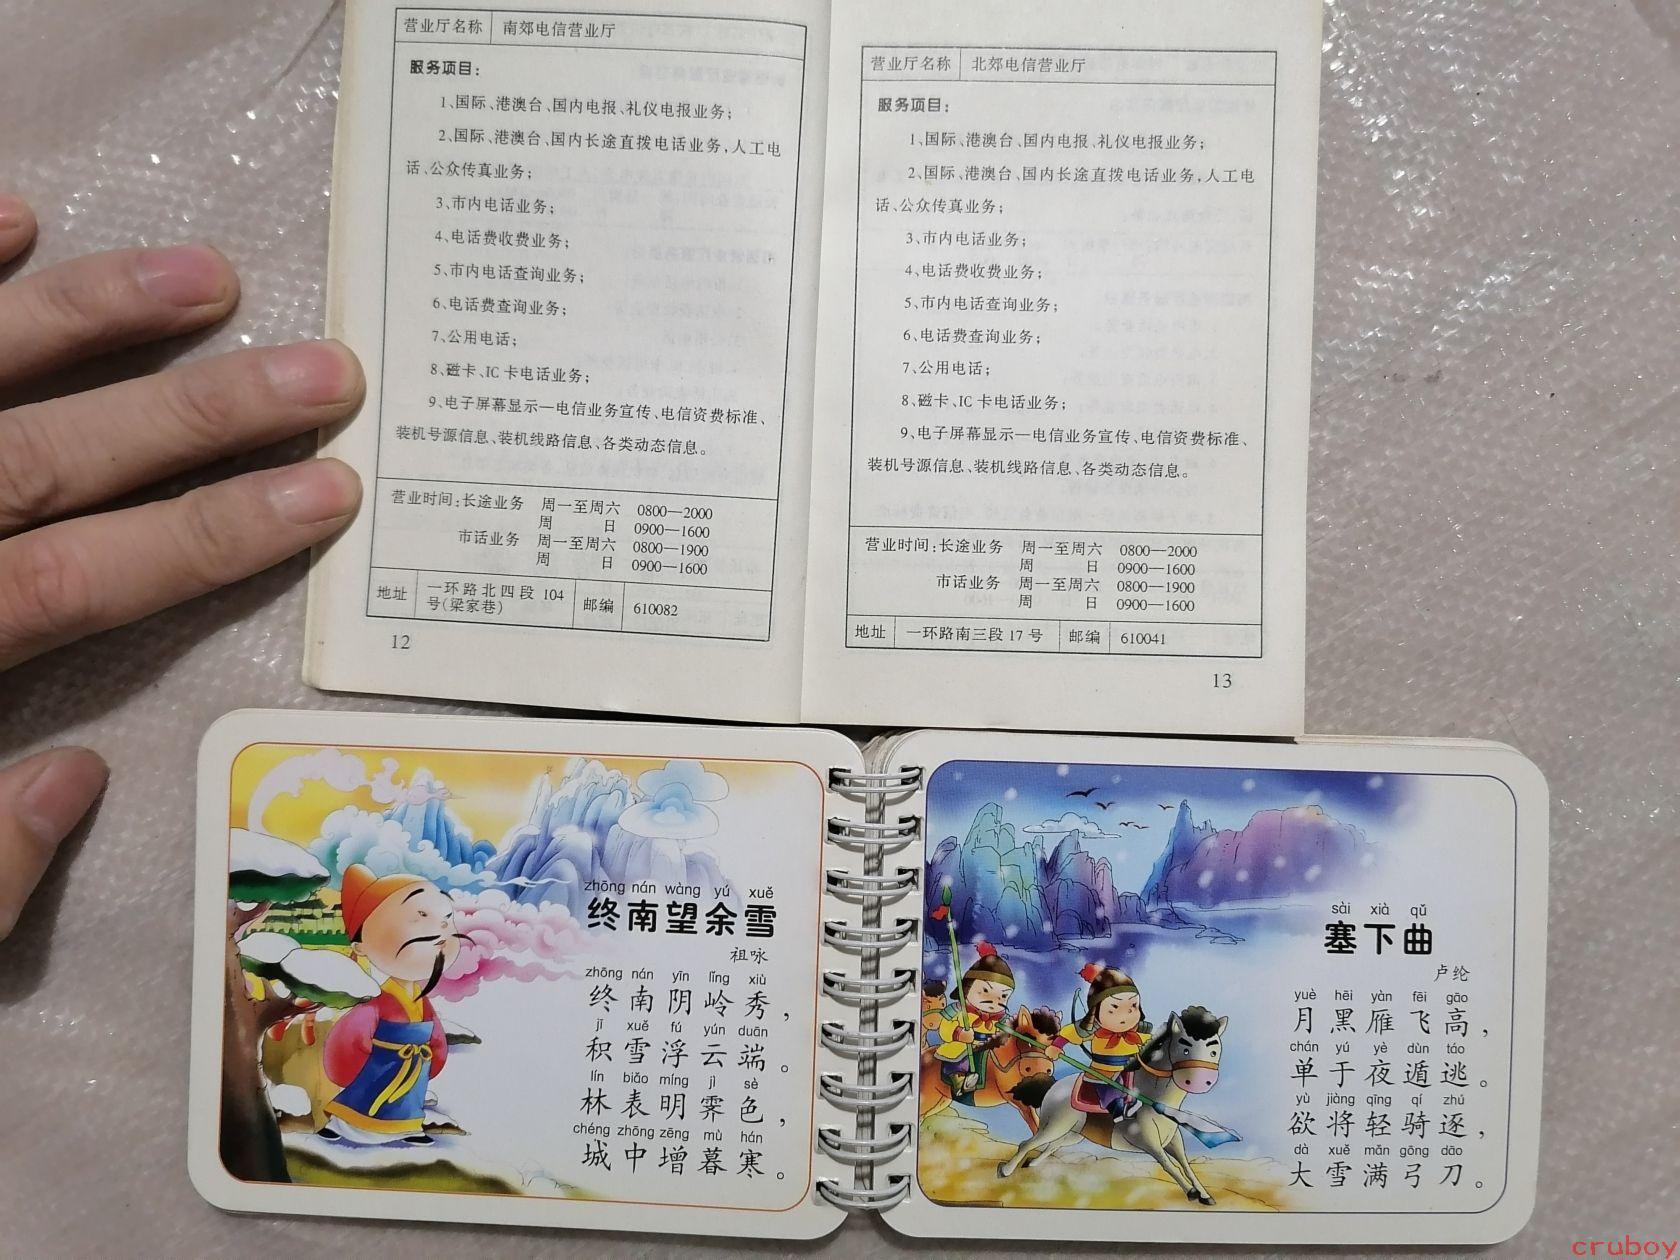 营业厅名称 南郊电信营业厅
服务项目:
1、国际、港澳台、国内电报、礼仪电报业务;
2、国际、港澳台、国内长途直拨电话业务,人工电
话、公众传真业务;
3、市内电话业务;
4、电话费收费业务;
5、市内电话查询业务;
6、电话费查询业务;
7、公用电话;
8、磁卡、IC卡电话业务;
9、电子屏幕显示—电信业务宣传、电信资费标准、
装机号源信息、装机线路信息、各类动态信息。
营业时间:长途业务 周一至周六 0800—2000
周 日 0900—1600
市话业务 周一至周六 0800—1900
周 日 0900—1600
地址 一环路北四段104
号(梁家巷) 邮编 610082
12
营业厅名称 北郊电信营业厅
服务项目:
1、国际、港澳台、国内电报、礼仪电报业务;
2、国际、港澳台、国内长途直拨电话业务,人工电
话、公众传真业务;
3、市内电话业务;
4、电话费收费业务;
5、市内电话查询业务;
6、电话费查询业务;
7、公用电话;
8、磁卡、IC卡电话业务;
9、电子屏幕显示—电信业务宣传、电信资费标准、
装机号源信息、装机线路信息、各类动态信息。
营业时间:长途业务 周一至周六 0800—2000
周 日 0900—1600
市话业务 周一至周六 0800—1900
周 日 0900—1600
地址 一环路南三段17号 邮编 610041
13
zhōng nán wàng yú xuě
终南望余雪
祖咏
zhōng nán yīn lǐng xiù
终南阴岭秀,
jī xuě fú yún duān
积雪浮云端。
lín biǎo míng jì sè
林表明霁色,
chéng zhōng zēng mù hán
城中增暮寒。
sài xià qǔ
塞下曲
卢纶
yuè hēi yàn fēi gāo
月黑雁飞高,
chán yú yè dùn táo
单于夜遁逃。
yù jiàng qīng qí zhú
欲将轻骑逐,
dà xuě mǎn gōng dāo
大雪满弓刀。
cruboy